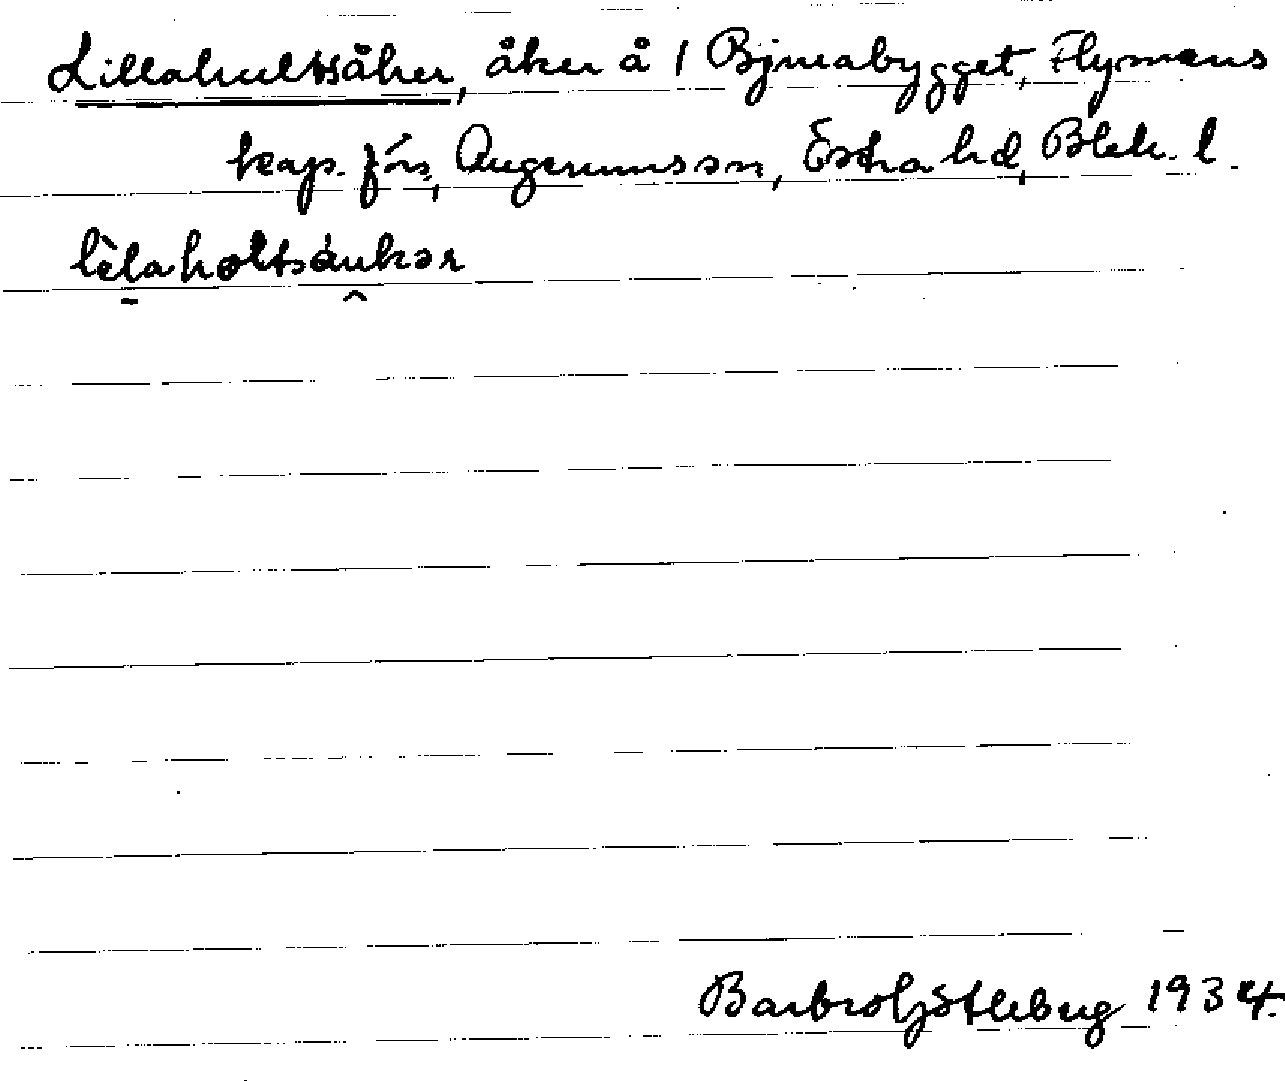 Lillahultsåker, åker å 1 Björneabygget, Flymens
kap. förs., Augerums sn, Östra hd, Blek. l.
lèlahòltsåukər
Barbro Söderberg 1934.